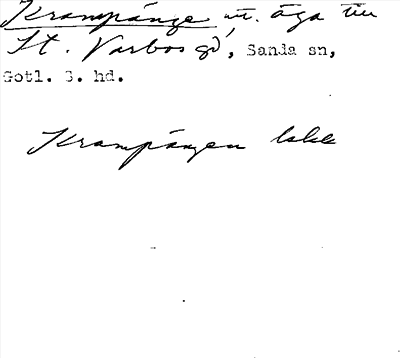 Krampänge utt. äga till
St. Varbos gd, Sanda sn,
Gotl. S. hd.
Krampängen